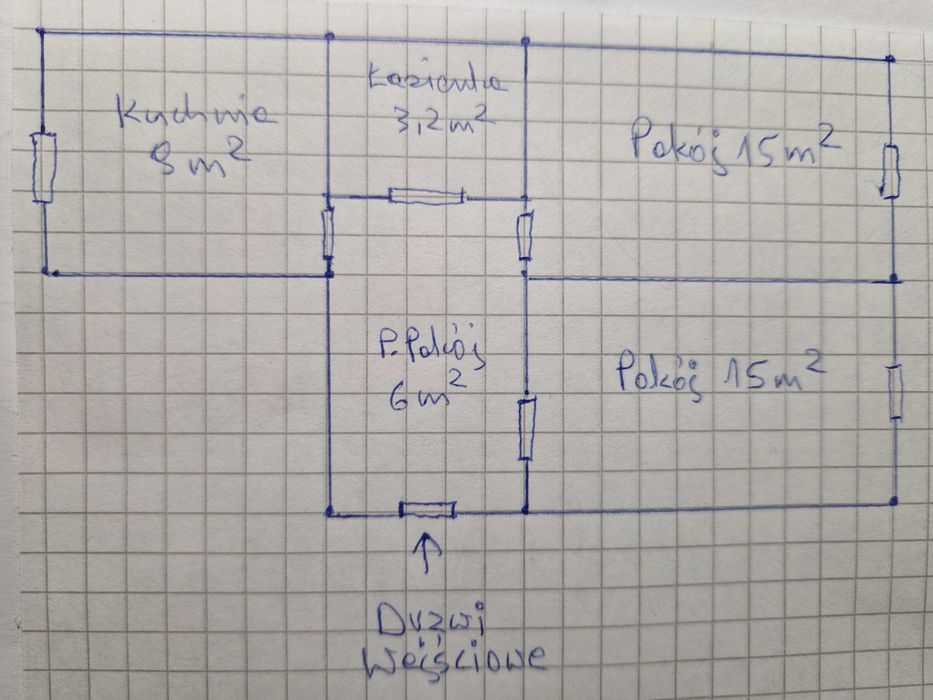 Kuchnia
8 m²
Łazienka
3,2 m²
Pokój 15 m²
P. Pokój
6 m²
Pokój 15 m²
Drzwi
Wejściowe